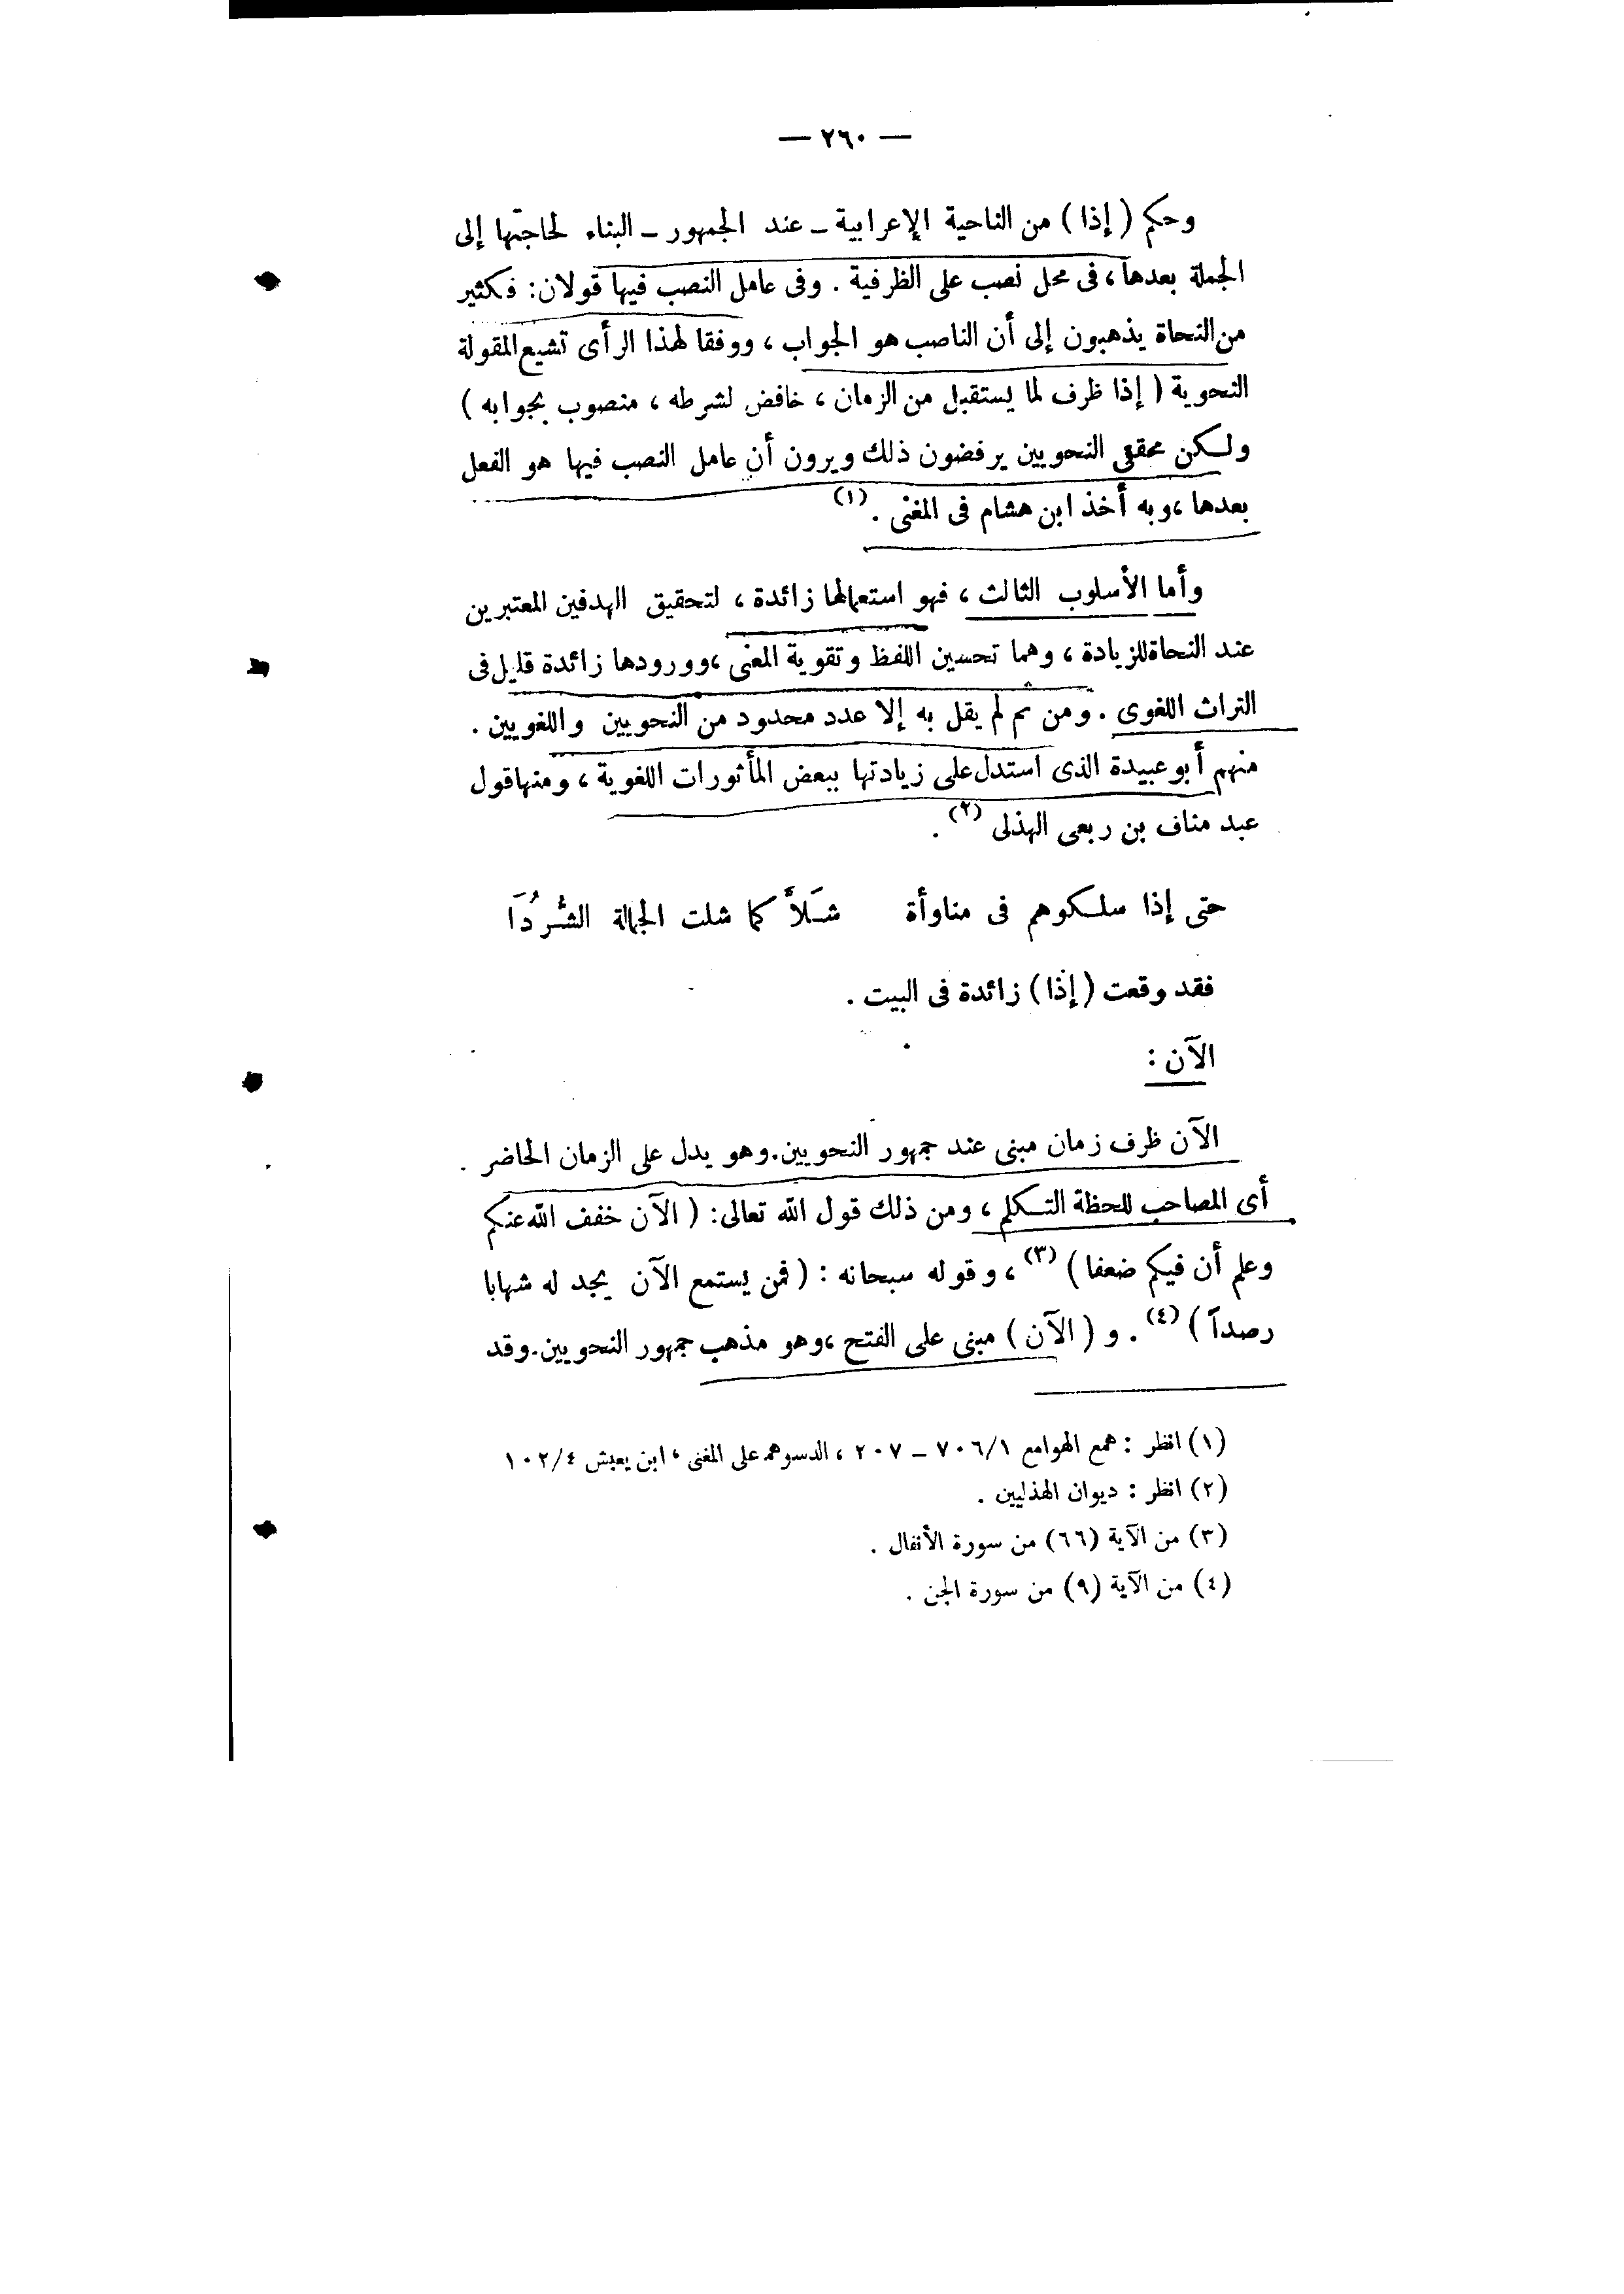 — ٢٦٠ —
وحكم (إذا) من الناحية الإعرابية – عند الجمهور – البناء لحاجتها إلى
الجملة بعدها، فى محل نصب على الظرفية . وفى عامل النصب فيها قولان: فكثير
من النحاة يذهبون إلى أن الناصب هو الجواب ، ووفقا لهذا الرأى تشيع المقولة
النحوية ( إذا ظرف لما يستقبل من الزمان ، خافض لشرطه ، منصوب بجوابه )
ولكن محققى النحويين يرفضون ذلك ويرون أن عامل النصب فيها هو الفعل
بعدها ، وبه أخذ ابن هشام فى المغنى . (١)
وأما الأسلوب الثالث ، فهو استعمالها زائدة ، لتحقيق الهدفين المعتبرين
عند النحاة للزيادة ، وهما تحسين اللفظ وتقوية المعنى ،وورودها زائدة قليل فى
التراث اللغوى . ومن ثم لم يقل به إلا عدد محدود من النحويين واللغويين .
منهم أبو عبيدة الذى استدل على زيادتها ببعض المأثورات اللغوية ، ومنها قول
عبد مناف بن ربعى الهذلى (٢) .
حتى إذا سلكوهم فى مناوأة شَلاًّ كما شلت الجمالة الشُّرُدَا
فقد وقعت (إذا) زائدة فى البيت .
الآن :
الآن ظرف زمان مبنى عند جمهور النحويين. وهو يدل على الزمان الحاضر .
أى المصاحب للحظة التكلم ، ومن ذلك قول الله تعالى: ( الآن خفف الله عنكم
وعلم أن فيكم ضعفا ) (٣) ، وقوله سبحانه : ( فمن يستمع الآن يجد له شهابا
رصداً ) (٤) . و ( الآن ) مبنى على الفتح ،وهو مذهب جمهور النحويين. وقد
(١) انظر : همع الهوامع ٧٠٦/١ – ٢٠٧ ، الدسوقى على المغنى ، ابن يعيش ١٠٢/٤
(٢) انظر : ديوان الهذليين .
(٣) من الآية (٦٦) من سورة الأنفال .
(٤) من الآية (٩) من سورة الجن .